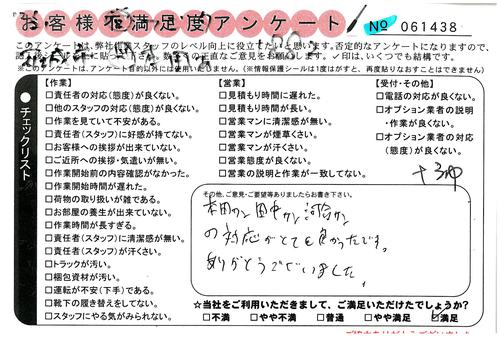 お客様不満足度アンケート
№ 061438
このアンケートは、弊社作業スタッフのレベル向上に役立てたいと思います。否定的なアンケートになりますので、
✓印は、いくつでも結構です。
※このアンケートは、アンケート目的以外には使用いたしません。(※情報保護シールは1度がすと、再度貼りなおすことはできません)
チェックリスト
【作業】
□責任者の対応(態度)が良くない。
□他のスタッフの対応(態度)が良くない。
□作業を見ていて不安がある。
□責任者(スタッフ)に好感が持てない。
□お客様への挨拶が出来ていない。
□ご近所への挨拶・気遣いが無い。
□作業開始前の内容確認がなかった。
□作業開始時間が遅れた。
□荷物の取り扱いが雑である。
□お部屋の養生が出来ていない。
□作業時間が長すぎる。
□責任者(スタッフ)に清潔感が無い。
□責任者(スタッフ)が汗くさい。
□トラックが汚い。
□梱包資材が汚い。
□運転が不安(下手)である。
□靴下の履き替えをしてない。
□スタッフにやる気がみられない。
【営業】
□見積もり時間に遅れた。
□見積もり時間が長い。
□営業マンに清潔感が無い。
□営業マンが煙草くさい。
□営業マンが汗くさい。
□営業態度が良くない。
□営業の説明と作業が一致してない。
【受付・その他】
□電話の対応が良くない。
□オプション業者の説明
・作業が良くない。
□オプション業者の対応
(態度)が良くない。
その他、ご意見・ご要望等ありましたらお書き下さい。
本田さん 田中さん
の対応がとても良かったです。
ありがとうございました。
☆当社をご利用いただきまして、ご満足いただけたでしょうか?
□不満 □やや不満 □普通 □やや満足 ☑満足